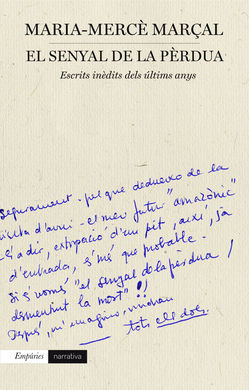 MARIA-MERCÈ MARÇAL
EL SENYAL DE LA PÈRDUA
Escrits inèdits dels últims anys
Segurament - pel que dedueixo de la
visita d'avui - el meu futur "amazònic"
és a dir, extirpació d'un pit, així, ja
d'entrada, és més que probable.
Si és només "el senyal de la pèrdua /
desmentint la mort"!
Després, m'imagino, vindran
tots els dols.
Empúries
narrativa